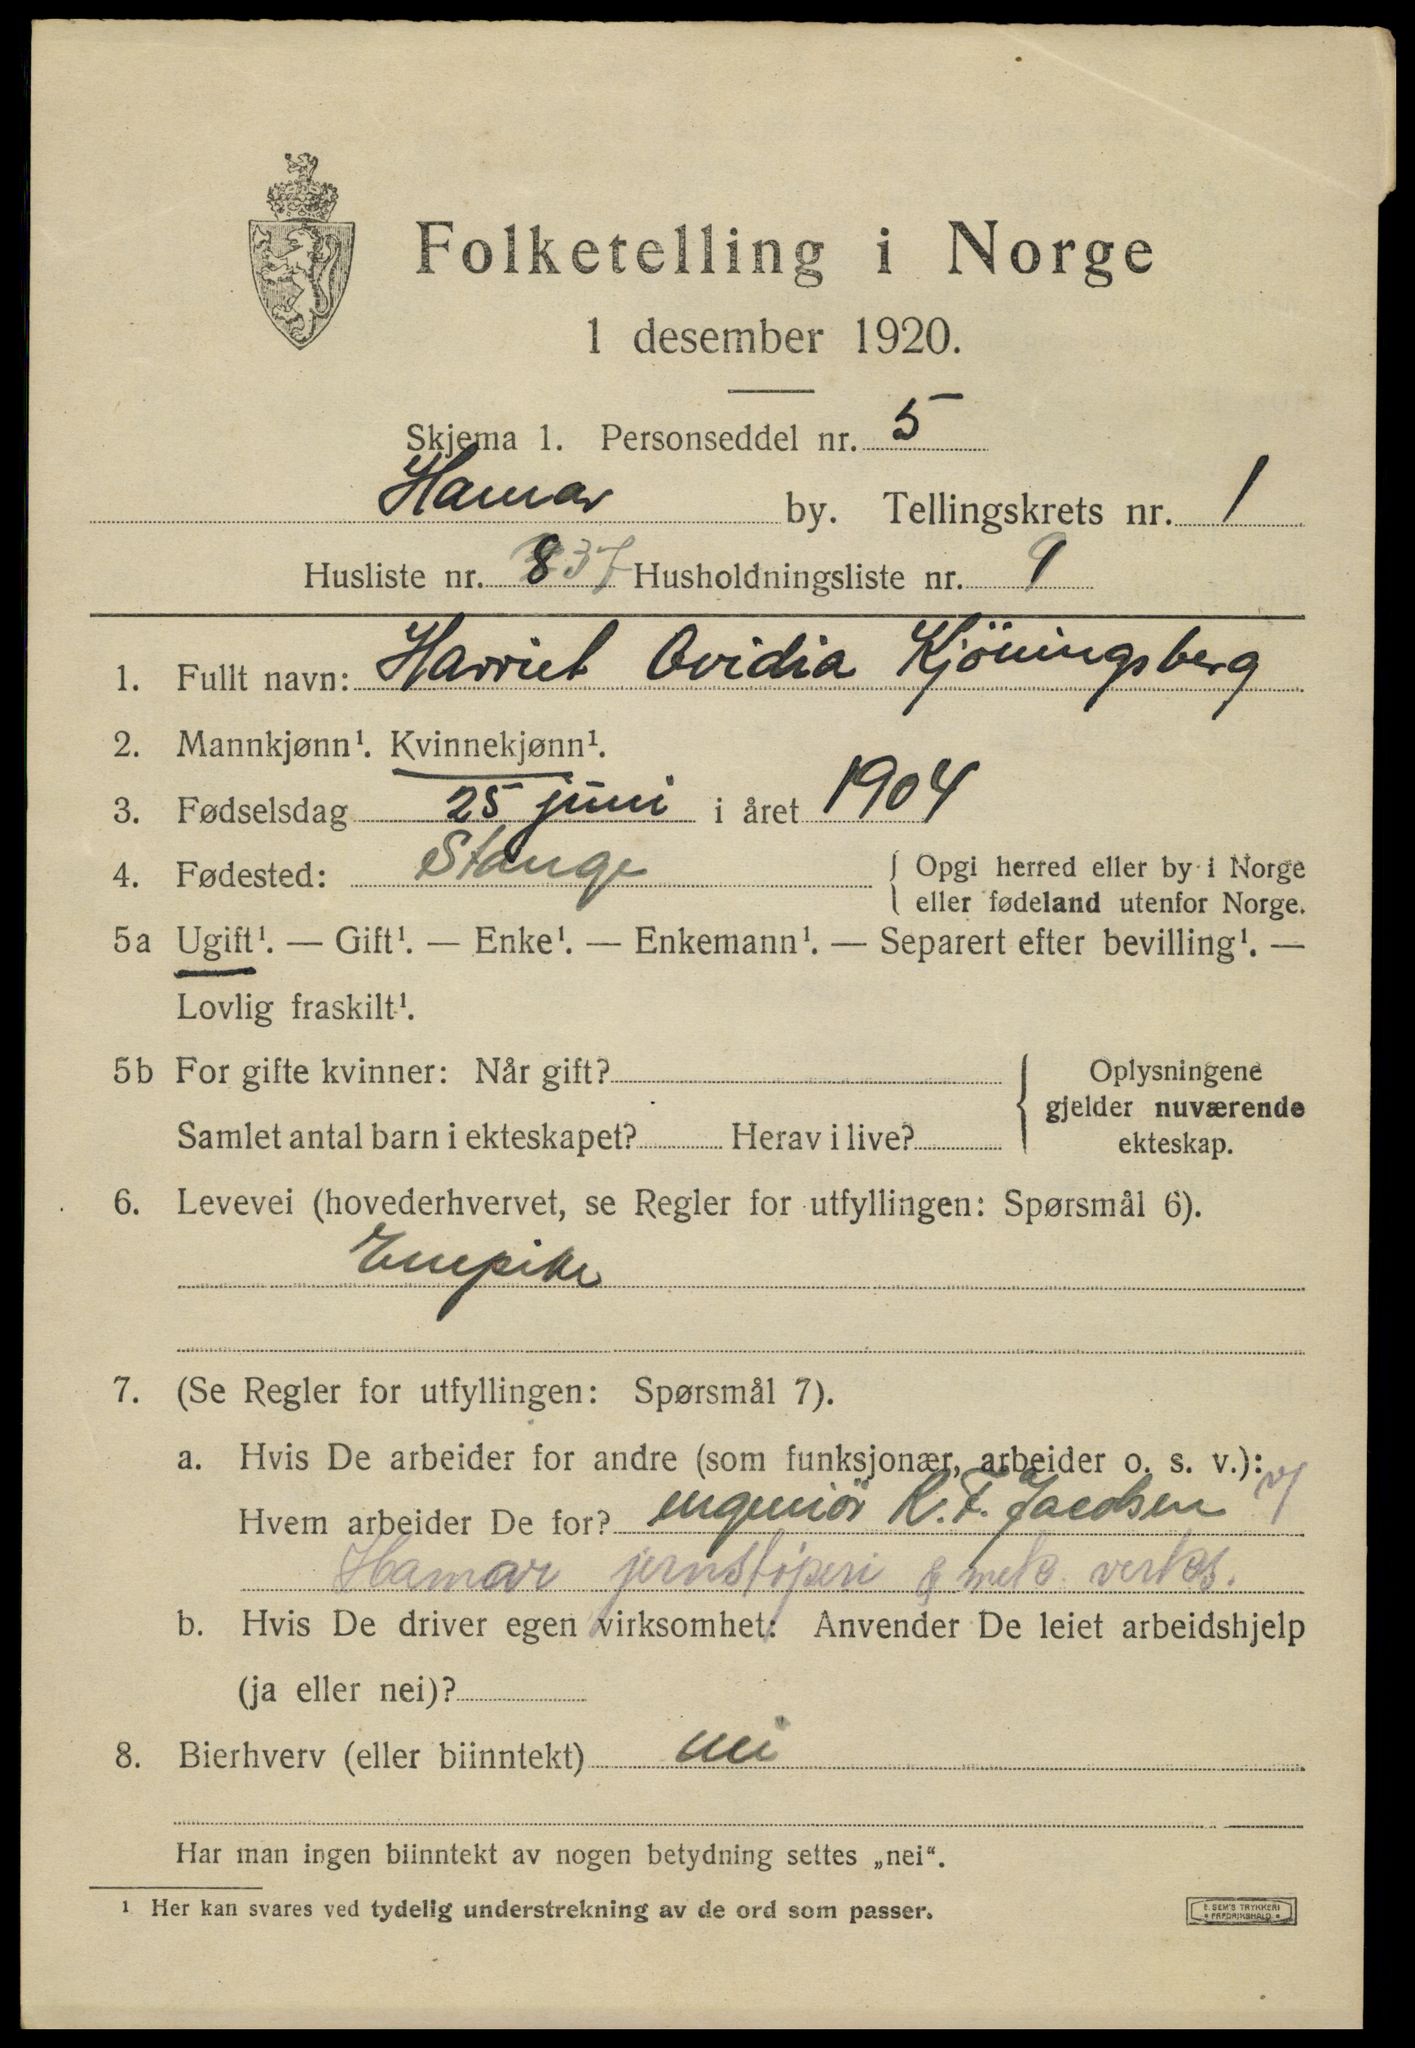 Folketelling i Norge
1 desember 1920.
Skjema 1. Personseddel nr. 5
Hamar by. Tellingskrets nr. 1
Husliste nr. 8 37 Husholdningsliste nr. 9
1. Fullt navn: Harriet Ovidia Kjöningsberg
2. Mannkjønn¹. Kvinnekjønn¹.
3. Fødselsdag 25 juni i året 1904
4. Fødested: Stange { Opgi herred eller by i Norge
eller fødeland utenfor Norge.
5a Ugift¹. — Gift¹. — Enke¹. — Enkemann¹. — Separert efter bevilling¹. —
Lovlig fraskilt¹.
5b For gifte kvinner: Når gift? { Oplysningene
gjelder nuværende
Samlet antal barn i ekteskapet? Herav i live? ekteskap.
6. Levevei (hovederhvervet, se Regler for utfyllingen: Spørsmål 6).
Enepike
7. (Se Regler for utfyllingen: Spørsmål 7).
a. Hvis De arbeider for andre (som funksjonær, arbeider o. s. v.):
Hvem arbeider De for? ingeniör K. F. Jacobsen v/
Hamar jernstöperi & mek. verks.
b. Hvis De driver egen virksomhet: Anvender De leiet arbeidshjelp
(ja eller nei)?
8. Bierhverv (eller biinntekt) nei
Har man ingen biinntekt av nogen betydning settes „nei“.
¹ Her kan svares ved tydelig understrekning av de ord som passer.
E. SEM'S TRYKKERI
FREDRIKSHALD